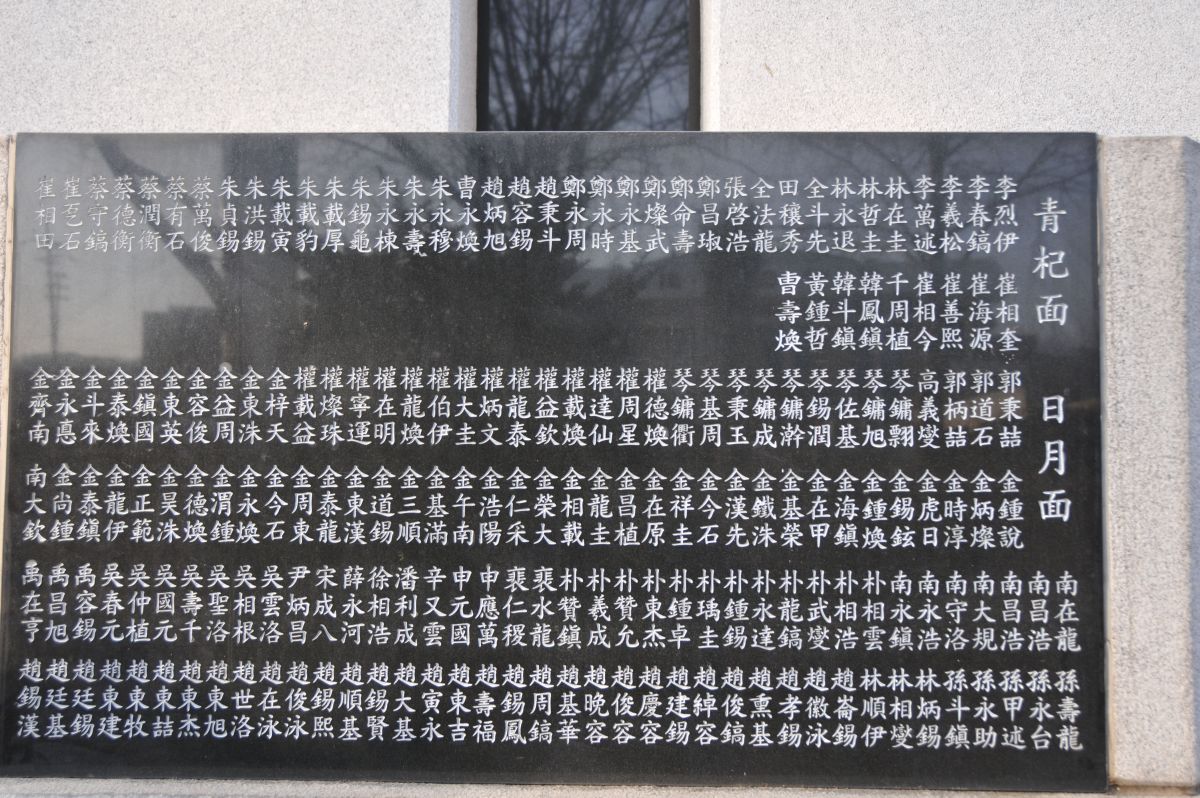 青杞面
李烈伊
李春鎬
李義松
李萬述
林在圭
林哲圭
林永退
全斗先
田穰秀
全法龍
張啓浩
鄭昌琡
鄭命壽
鄭燦武
鄭永基
鄭永時
鄭永周
趙秉斗
趙容錫
趙炳旭
曹永煥
朱永穆
朱永壽
朱永棟
朱錫龜
朱載厚
朱載豹
朱載寅
朱洪錫
朱貞錫
蔡萬俊
蔡有石
蔡潤衡
蔡德衡
蔡守鎬
崔石
崔相田
崔相奎
崔海源
崔善熙
崔相今
千周植
韓鳳鎭
韓斗鎭
黃鍾哲
曹壽煥
日月面
郭秉喆
郭道石
郭柄喆
高義燮
琴鏞翲
琴鏞旭
琴佐基
琴錫潤
琴鏞瀚
琴鏞成
琴秉玉
琴基周
琴鏞衢
權德煥
權周星
權達仙
權載煥
權益欽
權龍泰
權炳文
權大圭
權伯伊
權龍煥
權在明
權寧運
權燦珠
權載益
金梓天
金東洙
金益周
金容俊
金東英
金鎭國
金泰煥
金斗來
金永悳
金齊南
金鍾說
金炳燦
金時淳
金虎日
金錫鉉
金鍾煥
金海鎭
金在甲
金基榮
金鐵洙
金漢先
金今石
金祥圭
金在原
金昌植
金龍圭
金相載
金榮大
金仁采
金浩陽
金午南
金基滿
金三順
金道錫
金東漢
金泰龍
金周東
金今石
金永煥
金渭鍾
金德煥
金昊洙
金正範
金龍伊
金泰鎭
金尚鍾
南大欽
南在龍
南昌浩
南昌浩
南大規
南守洛
南永浩
南永鎭
朴相雲
朴相浩
朴武燮
朴龍鎬
朴永達
朴鍾錫
朴瑀圭
朴鍾卓
朴東杰
朴贊允
朴義成
朴贊鎭
裵水龍
裵仁稷
申應萬
申元國
辛又雲
潘利成
徐相浩
薛永河
宋成八
尹炳昌
吳雲洛
吳相根
吳聖洛
吳壽千
吳國元
吳仲植
吳春元
禹容錫
禹昌旭
禹在亨
孫壽龍
孫永台
孫甲述
孫永助
孫斗鎭
林炳錫
林相燮
林順伊
趙崙錫
趙徽泳
趙孝錫
趙熏基
趙俊鎬
趙綽容
趙建錫
趙慶容
趙俊容
趙晩容
趙基華
趙周鎬
趙錫鳳
趙壽福
趙東吉
趙寅永
趙大基
趙錫賢
趙順基
趙錫熙
趙俊泳
趙在泳
趙世洛
趙東旭
趙東杰
趙東喆
趙東牧
趙東建
趙廷錫
趙廷基
趙錫漢